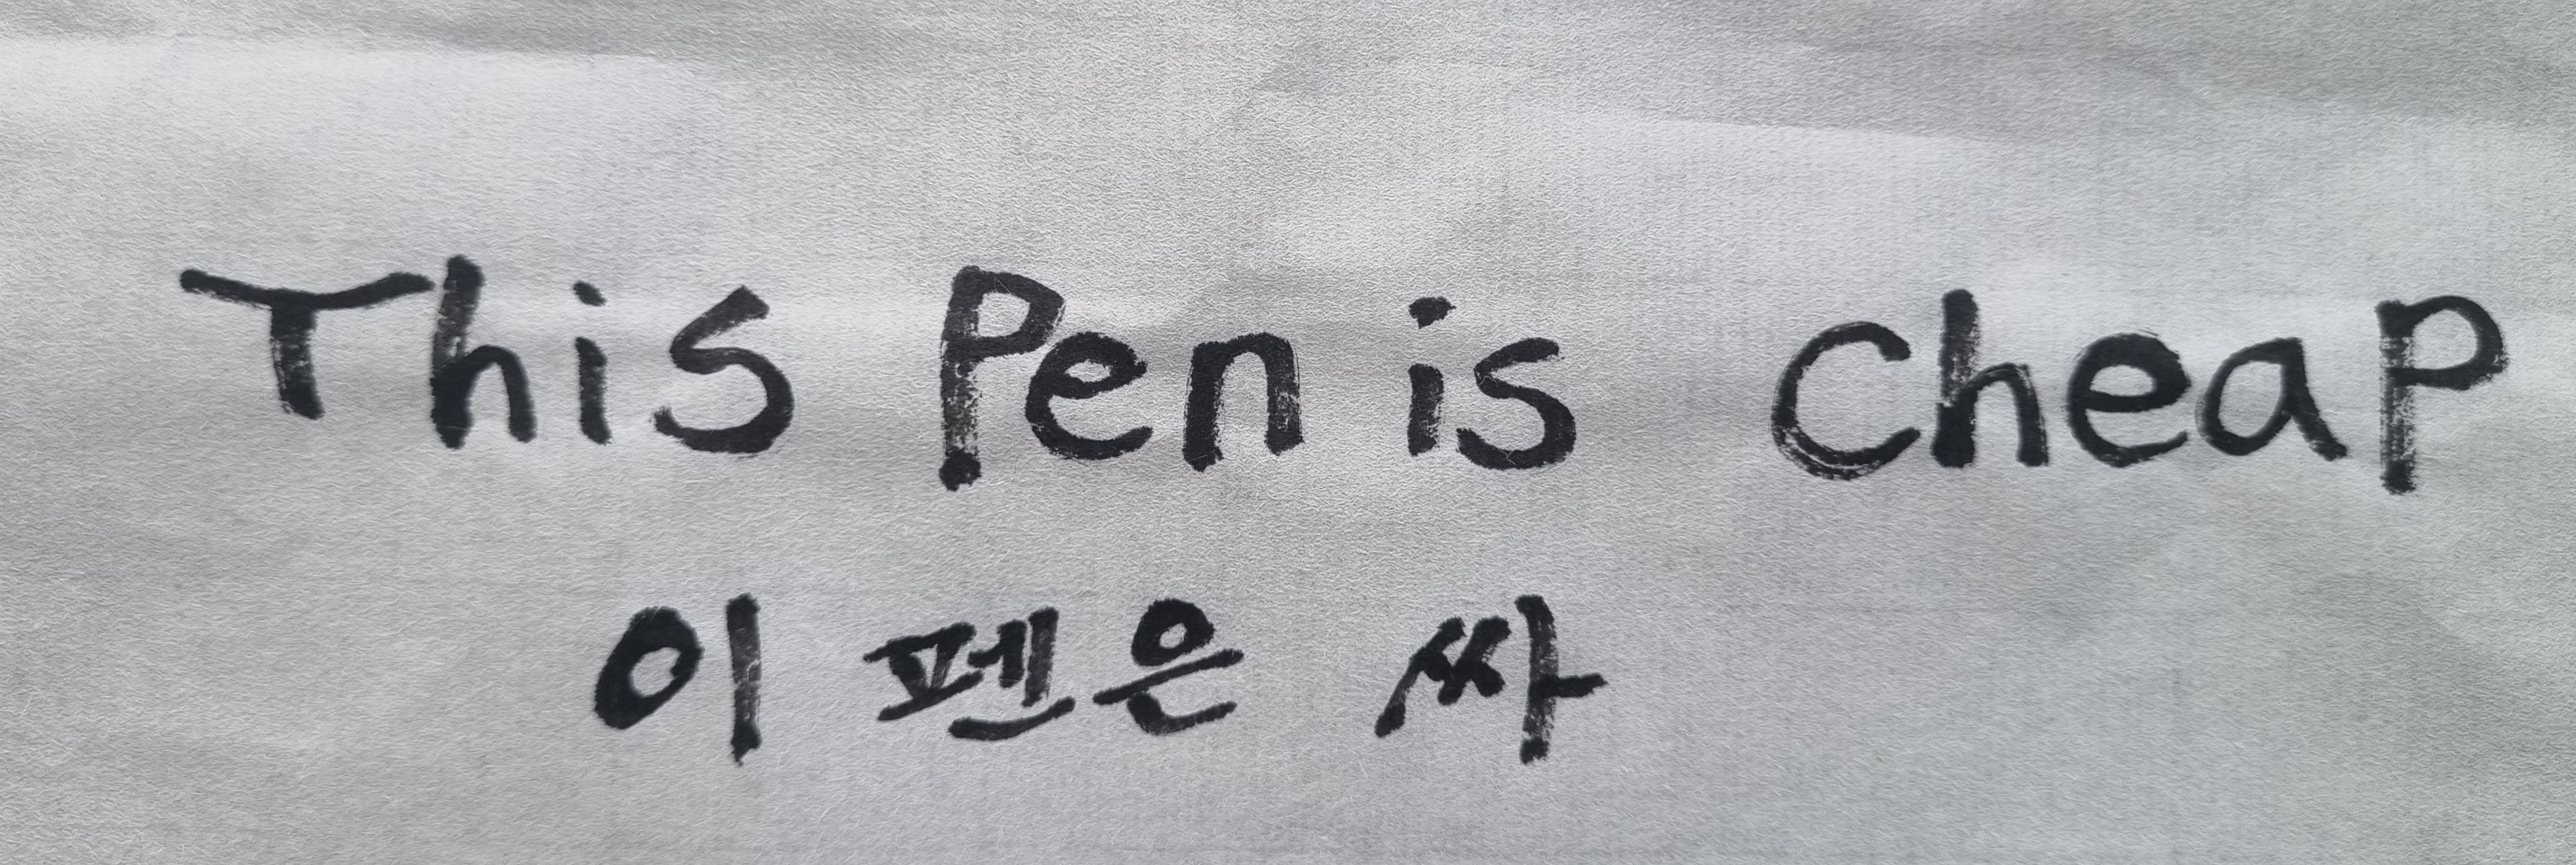 This Pen is cheap
이 펜은 싸